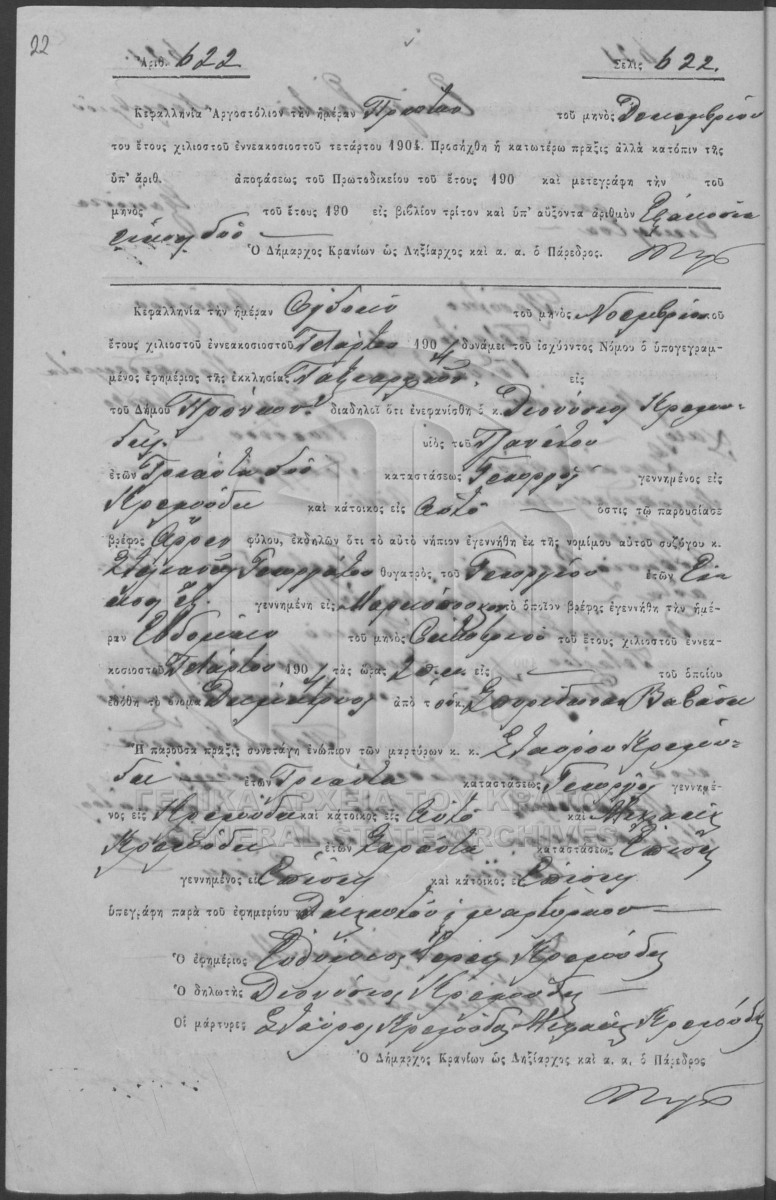 22
Ἀριθ. 622 Σελὶς 622.
Κεφαλληνία Ἀργοστόλιον τὴν ἡμέραν Πρώτην τοῦ μηνὸς Δεκεμβρίου
του ἔτους χιλιοστοῦ ἐννεακοσιοστοῦ τετάρτου 1904. Προσήχθη ἡ κατωτέρω πρᾶξις ἀλλὰ κατόπιν τῆς
ὑπ' ἀριθ. ἀποφάσεως τοῦ Πρωτοδικείου τοῦ ἔτους 190 καὶ μετεγράφη τὴν τοῦ
μηνὸς τοῦ ἔτους 190 εἰς βιβλίον τρίτον καὶ ὑπ' αὔξοντα ἀριθμὸν Ἑξακόσια
εἴκοσι δύο
Ὁ Δήμαρχος Κρανίων ὡς Ληξίαρχος καὶ α. α. ὁ Πάρεδρος.
Κεφαλληνία τὴν ἡμέραν Ὀγδόην τοῦ μηνὸς Νοεμβρίου τοῦ
ἔτους χιλιοστοῦ ἐννεακοσιοστοῦ Τετάρτου 1904 δυνάμει τοῦ ἰσχύοντος Νόμου ὁ ὑπογεγραμ-
μένος ἐφημέριος τῆς ἐκκλησίας Ταξιαρχῶν εἰς
τοῦ Δήμου Πρόννων διαδηλοῖ ὅτι ἐνεφανίσθη ὁ κ. Διονύσιος Κρεμύ-
δας υἱὸς τοῦ
ἐτῶν Τριάντα δύο καταστάσεως Γεωργὸς γεννημένος εἰς
Κρεμύδι καὶ κάτοικος εἰς Αὐτό ὅστις τῷ παρουσίασε
βρέφος Ἄῤῥεν φύλου, ἐκδηλῶν ὅτι τὸ αὐτὸ νήπιον ἐγεννήθη ἐκ τῆς νομίμου αὐτοῦ συζύγου κ.
Στυλιανῆς Γεωργάτου θυγατρὸς τοῦ Γεωργίου ἐτῶν Εἴ-
κοσι γεννημένη εἰς Μαρκόπουλον τὸ ὁποῖον βρέφος ἐγεννήθη τὴν ἡμέ-
ραν Ἑβδόμην τοῦ μηνὸς Ὀκτωβρίου τοῦ ἔτους χιλιοστοῦ ἐννεα-
κοσιοστοῦ Τετάρτου 1904 τὰς ὥρας 2 εἰς τοῦ ὁποίου
ἐδόθη τὸ ὄνομα ἀπὸ τὸν κ. Σπυρίδωνα
Ἡ παροῦσα πρᾶξις συνετάγη ἐνώπιον τῶν μαρτύρων κ. κ. Σταύρου Κρεμύ-
δα ἐτῶν Τριάντα καταστάσεως Γεωργὸς γεννημέ-
νος εἰς Κρεμύδι καὶ κάτοικος εἰς Αὐτό καὶ
Κρεμύδα ἐτῶν Σαράντα καταστάσεως Ἐπίσης
γεννημένος εἰς Ἐπίσης καὶ κάτοικος εἰς Ἐπίσης
ὑπεγράφη παρὰ τοῦ ἐφημερίου καὶ μαρτύρων
Ὁ ἐφημέριος Εὐθύμιος Ἱερεὺς Κρεμύδας
Ὁ δηλωτὴς Διονύσιος Κρεμύδας
Οἱ μάρτυρες Σταῦρος Κρεμύδας Κρεμύδας
Ὁ Δήμαρχος Κρανίων ὡς Ληξίαρχος καὶ α. α. ὁ Πάρεδρος
ΓΕΝΙΚΑ ΑΡΧΕΙΑ ΤΟΥ ΚΡΑΤΟΥΣ
GENERAL STATE ARCHIVES